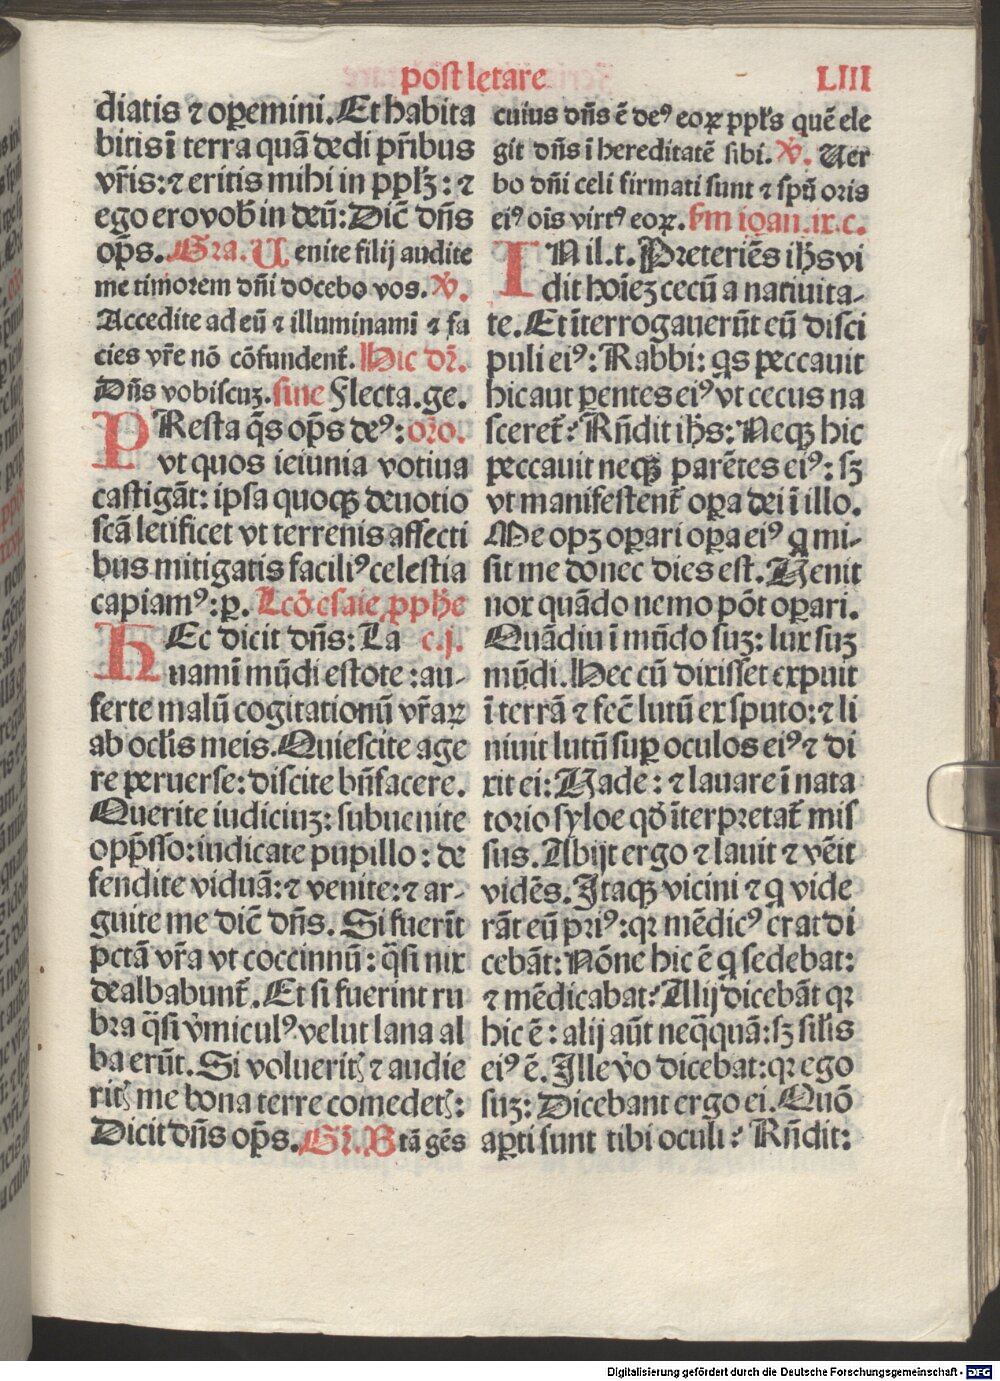 post letare
LIII
diatis ⁊ opemini. Et habita
bitis ī terra quā dedi prībus
vr̄is: ⁊ eritis mihi in ppl'ꝫ: ⁊
ego ero vob̄ in deū: Dic̄ dn̄s
ops. Gra. Uenite filij audite
me timorem dn̄i docebo vos. v̇.
Accedite ad eū ⁊ illuminamī ⁊ fa
cies vr̄e nō cōfundent̄. Hic dr̄.
Dn̄s vobiscuꝫ. sine Flecta. ge.
PResta q̄s op̄s deꝰ: oro.
vt quos ieiunia votiua
castigāt: ipsa quoqꝫ deuotio
scā letificet vt terrenis affecti
bus mitigatis faciliꝰ celestia
capiamꝰ: p. Lcō esaie ꝓphe
HEc dicit dn̄s: La c.j.
uamī mūdi estote: au-
ferte malū cogitationū vr̄aꝝ
ab ocl'is meis. Quiescite age
re peruerse: discite bn̄facere.
Querite iudiciuꝫ: subuenite
opp̄sso: iudicate pupillo: de
fendite viduā: ⁊ venite: ⁊ ar-
guite me dic̄ dn̄s. Si fuerīt
pctā vr̄a vt coccinnū: q̄si nix
dealbabunt̄. Et si fuerint ru
bra q̄si v̇miculꝰ velut lana al
ba erūt. Si volueritꝭ ⁊ audie
ritꝭ me bona terre comedetꝭ:
Dicit dn̄s op̄s. Gr̄. Btā gēs
cuius dn̄s ē deꝰ eoꝝ ppl's quē ele
git dn̄s ī hereditatē sibi. v̇. Uer
bo dn̄i celi firmati sunt ⁊ spū oris
eiꝰ oīs virtꝰ eoꝝ. Sm ioan. ix. c.
IN il. t. Preteriēs ih̄s vi
dit hoīeꝫ cecū a natiuita-
te. Et īterrogauerūt eū disci
puli eiꝰ: Rabbi: qs peccauit
hic aut ꝑentes eiꝰ vt cecus na
sceret̄? Rn̄dit ih̄s: Neqꝫ hic
peccauit neqꝫ parētes eiꝰ: sꝫ
vt manifestent̄ oꝑa dei ī illo.
Me opꝫ oꝑari oꝑa eiꝰ q mi-
sit me donec dies est. Uenit
nox quādo nemo pōt oꝑari.
Quādiu ī mūdo suꝫ: lux suꝫ
mūdi. Hec cū dixisset expuit
ī terrā ⁊ fec̄ lutū ex sputo: ⁊ li
niuit lutū suꝑ oculos eiꝰ ⁊ di
xit ei: Uade: ⁊ lauare ī nata
torio syloe qd̄ īterpretat̄ mis
sus. Abijt ergo ⁊ lauit ⁊ vēit
vidēs. Itaqꝫ vicini ⁊ q vide
rāt eū priꝰ: qr mēdicꝰ erat di
cebāt: Nōne hic ē q sedebat:
⁊ mēdicabat? Alij dicebāt qr
hic ē: alij aūt neq̄quā: sꝫ silis
eiꝰ ē. Ille v̇o dicebat: qr ego
suꝫ: Dicebant ergo ei. Quō
aꝑti sunt tibi oculi? Rn̄dit:
Digitalisierung gefördert durch die Deutsche Forschungsgemeinschaft - DFG